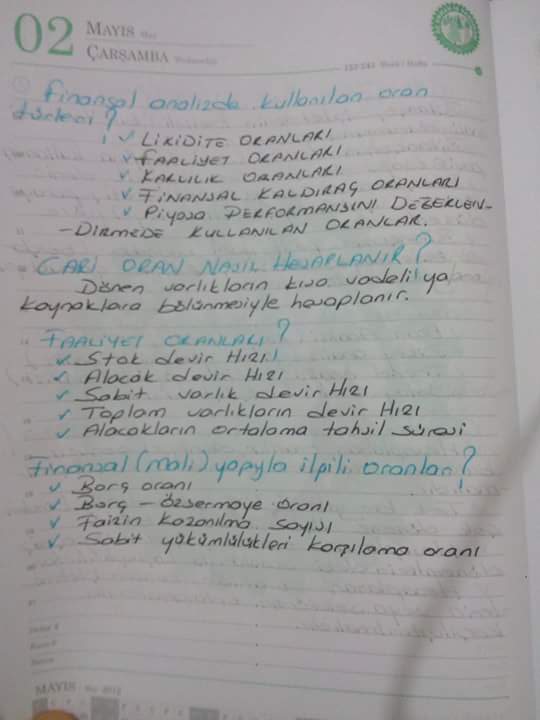 02 MAYIS May
ÇARŞAMBA Wednesday
Finansal analizde kullanılan oran
türleri?
✓ LİKİDİTE ORANLARI
✓ FAALİYET ORANLARI
✓ KARLILIK ORANLARI
✓ FİNANSAL KALDIRAÇ ORANLARI
✓ Piyasa PERFORMANSINI DEĞERLEN-
-DİRMEDE KULLANILAN ORANLAR.
CARİ ORAN NASIL HESAPLANIR?
Dönen varlıkların kısa vadeli ya
kaynaklara bölünmesiyle hesaplanır.
FAALİYET ORANLARI?
✓ Stok devir HIZI
✓ Alacak devir HIZI
✓ Sabit varlık devir HIZI
✓ Toplam varlıkların devir HIZI
✓ Alacakların ortalama tahsil süresi
Finansal (mali) yapıyla ilgili oranlar?
✓ Borç oranı
✓ Borç - özsermaye oranı
✓ Faizin kazanılma sayısı
✓ Sabit yükümlülükleri karşılama oranı
MAYIS May 2012